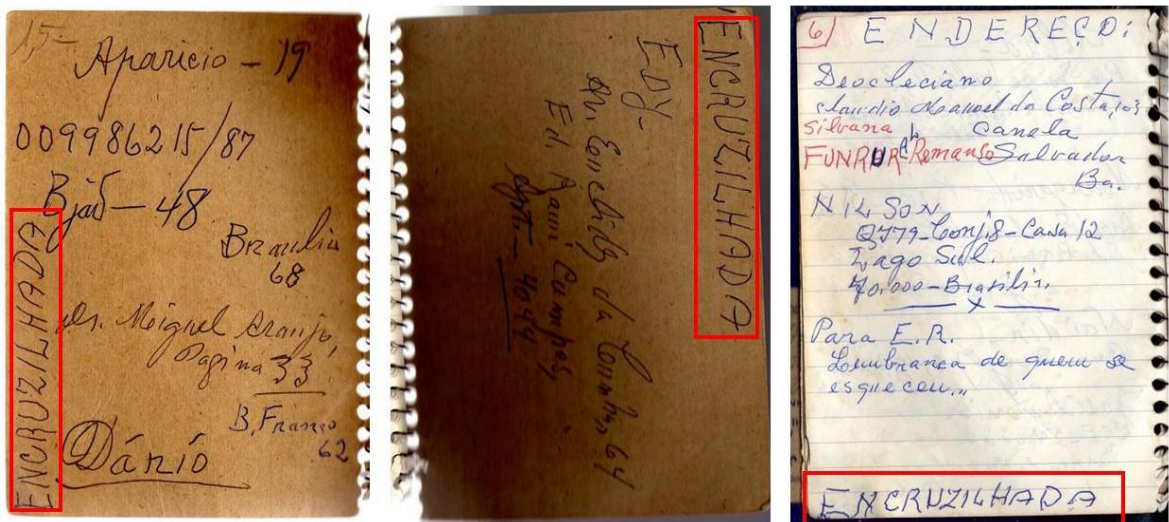 15-
Aparicio - 19
009986215/87
Bjaó - 48
Braulia
68
Dr. Miguel Araujo,
Pagina 33
B. Franco
62
Dárío
ENCRUZILHADA
ENCRUZILHADA
Edy-
Av. Euclides da Cunha, 64
Ed. Rami Campos,
Apto - 404
6) ENDEREÇO:
Deocleciano
Claudio Manoel da Costa,
Silvana Canela
FUNRURAL Remanso Salvador
Ba.
NILSON
Conj.8-Casa 12
Lago Sul.
70.000-Brasilia.
x
Para E.R.
Lembrança de quem se
esqueceu...
ENCRUZILHADA